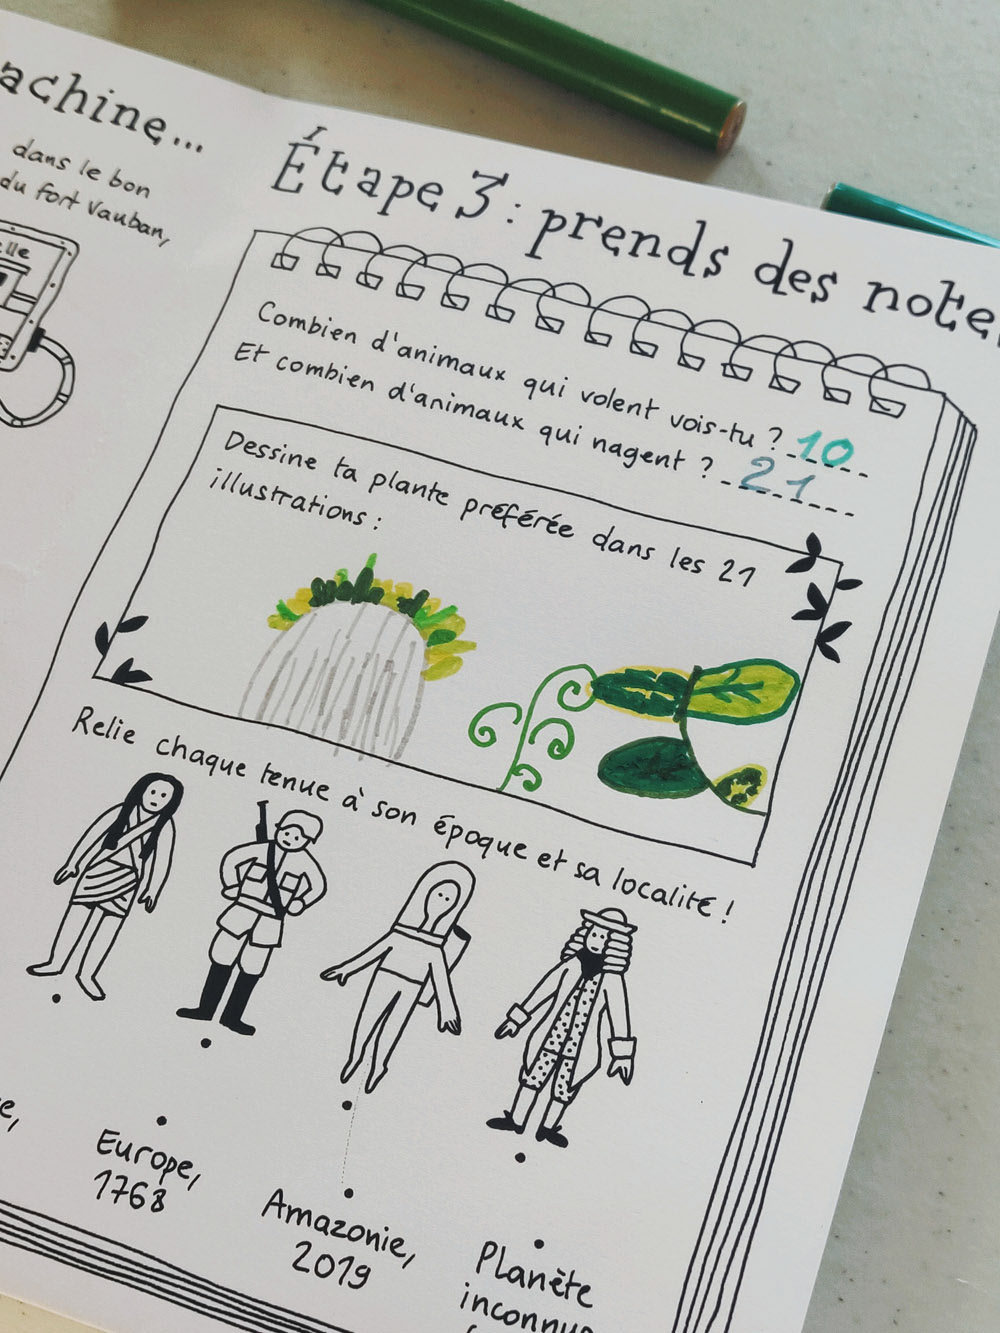 achine...
dans le bon
du fort Vauban,
lle
Étape 3 : prends des note
Combien d'animaux qui volent vois-tu ? 10
Et combien d'animaux qui nagent ? 21
Dessine ta plante préférée dans les 21
illustrations :
Relie chaque tenue à son époque et sa localité !
e,
Europe,
1768
Amazonie,
2019
Planète
inconnue